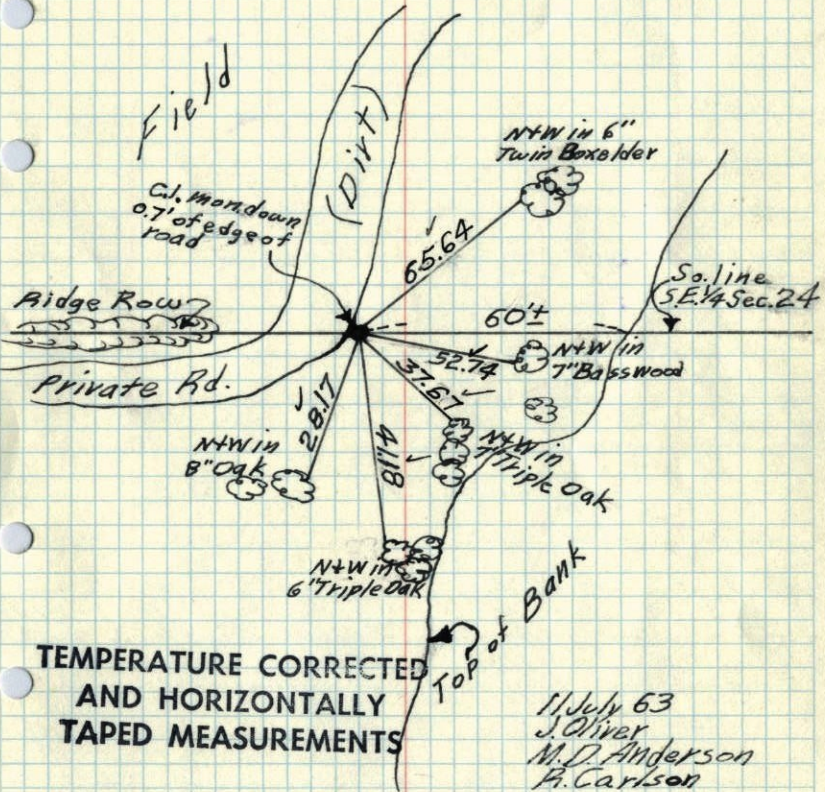 Field
(Dirt)
N+W in 6"
Twin Boxelder
C.I. mon. down
0.7' of edge of
road
65.64
So. line
S.E. 1/4 Sec. 24
Ridge Row
60'±
N+W in
7" Basswood
52.74
37.67
Private Rd.
28.17
41.18
N+W in
8" Oak
N+W in
7" Triple Oak
N+W in
6" Triple Oak
Top of Bank
TEMPERATURE CORRECTED
AND HORIZONTALLY
TAPED MEASUREMENTS
11 July 63
J. Oliver
M.D. Anderson
R. Carlson